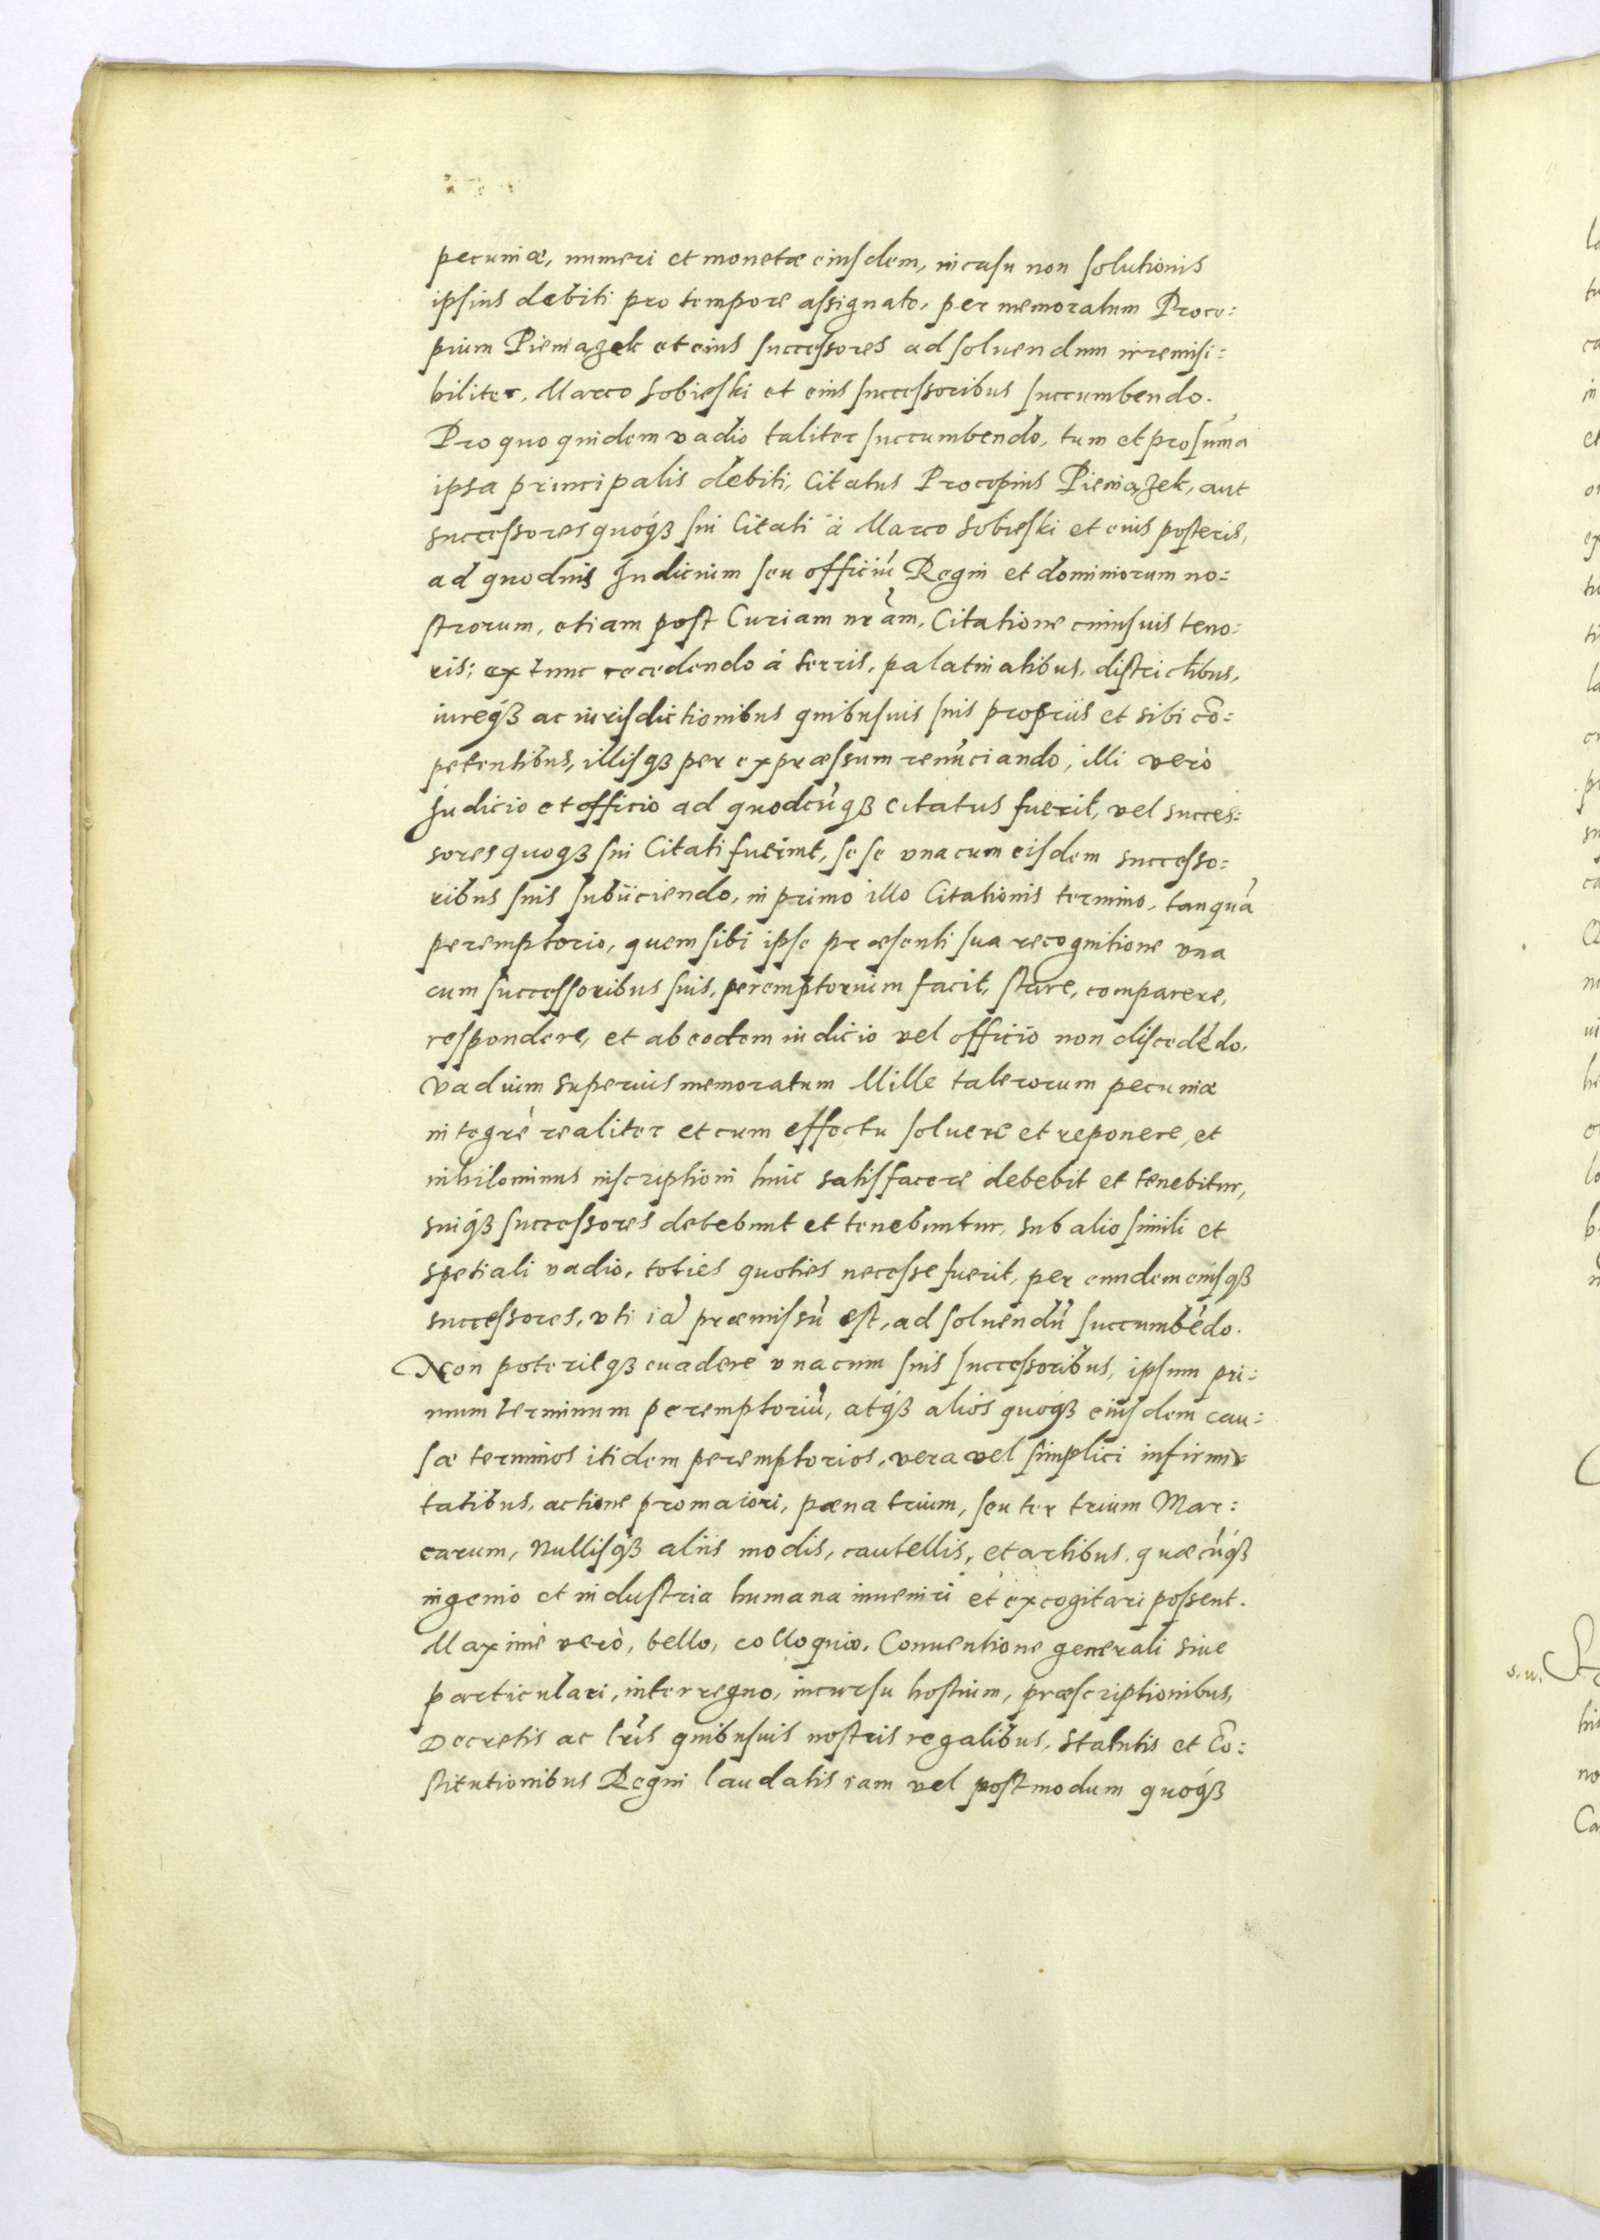 pecuniæ, numeri et monetæ eiusdem, in casu non solutionis
ipsius debiti pro tempore assignato, per memoratum Proco:
pium Pieniązek et eius successores ad soluendum irremisi:
biliter, Marco Sobieski et eius successoribus succumbendo.
Pro quo quidem vadio taliter succumbendo, tum et pro sum̃a
ipsa principalis debiti, Citatus Procopius Pieniązek, aut
successores quoqȝ sui Citati à Marco Sobieski et eius posteris,
ad quoduis Judicium seu officiũ Regni et dominiorum no:
strorum, etiam post Curiam nr̃am, Citatione cuiusuis teno:
ris; ex tunc recedendo á terris, palatinatibus, districtibus,
iureqȝ ac iurisdictionibus quibusuis suis proprijs et sibi cõ:
petentibus, illisqȝ per expræssum renũciando, illi verò
Judicio et officio ad quodcũqȝ citatus fuerit, vel succes:
sores quoqȝ sui Citati fuerint, se se vna cum eisdem successo:
ribus suis subijciendo, in primo illo Citationis termino, tanquã
peremptorio, quem sibi ipse præsenti sua recognitione vna
cum successoribus suis, peremptorium facit, stare, comparere,
respondere, et ab eodem iudicio vel officio non discedẽdo,
vadium superius memoratum Mille talerorum pecuniæ
integrè realiter et cum effectu soluere et reponere, et
nihilominus inscriptioni huic satisfacere debebit et tenebitur,
suiqȝ successores debebunt et tenebuntur, sub alio simili et
spetiali vadio, toties quoties necesse fuerit, per eundem eiusqȝ
successores, vti iã præmissũ est, ad soluendũ succumbẽdo.
Non poteritqȝ euadere vna cum suis successoribus, ipsum pri:
mum terminum peremptoriũ, atqȝ alios quoqȝ eiusdem cau:
sæ terminos itidem peremptorios, vera vel simplici infirmi:
tatibus, actione pro maiori, pæna trium, seu ter trium Mar:
carum, Nullisqȝ alijs modis, cautellis, et artibus, quæcũqȝ
ingenio et industria humana inueniri et excogitari possent.
Maximè verò, bello, colloquio, Conuentione generali siue
particulari, interregno, incursu hostium, præscriptionibus,
Decretis ac lr̃is quibusuis nostris regalibus, Statutis et Cõ:
stitutionibus Regni laudatis iam vel postmodum quoqȝ